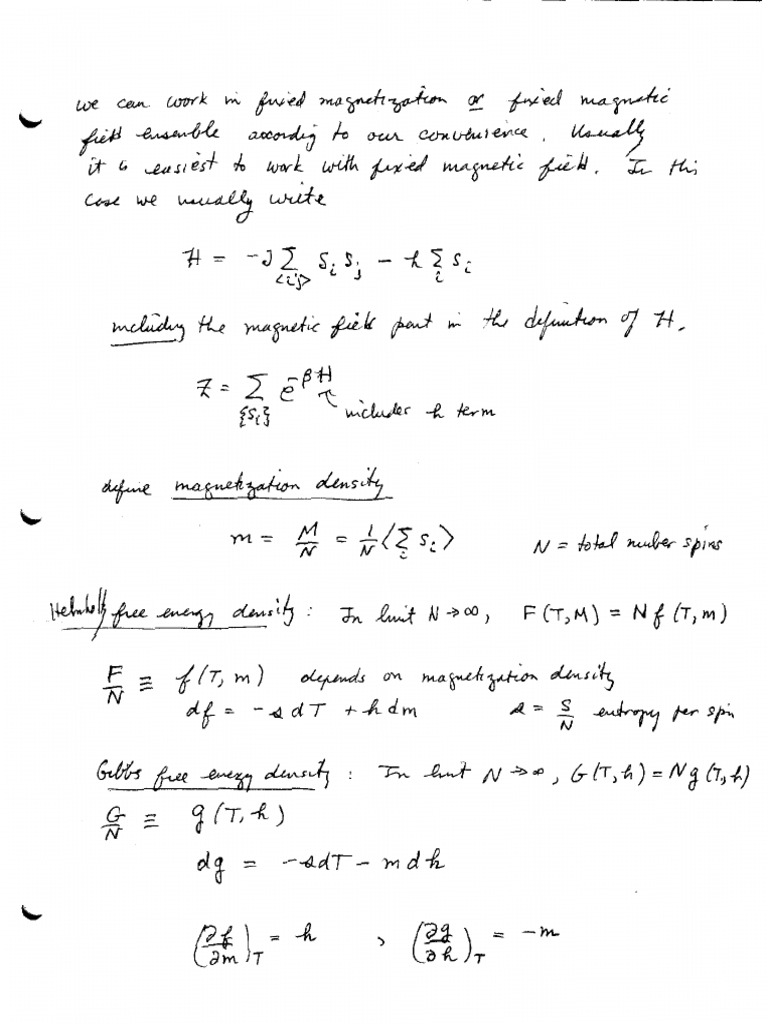 we can work in fixed magnetization or fixed magnetic
field ensemble according to our convenience. Usually
it is easiest to work with fixed magnetic field. In this
case we usually write
H = -J Σ_{<ij>} S_i S_j - h Σ_i S_i
including the magnetic field part in the definition of H.
Z = Σ_{{s_i}} e^{-βH} includes h term
define magnetization density
m = M/N = 1/N ⟨Σ_i S_i⟩ N = total number spins
Helmholtz free energy density: In limit N→∞, F(T,M) = N f(T,m)
F/N ≡ f(T,m) depends on magnetization density
df = -s dT + h dm s = S/N entropy per spin
Gibbs free energy density: In limit N→∞, G(T,h) = N g(T,h)
G/N ≡ g(T,h)
dg = -s dT - m dh
(∂f/∂m)_T = h , (∂g/∂h)_T = -m